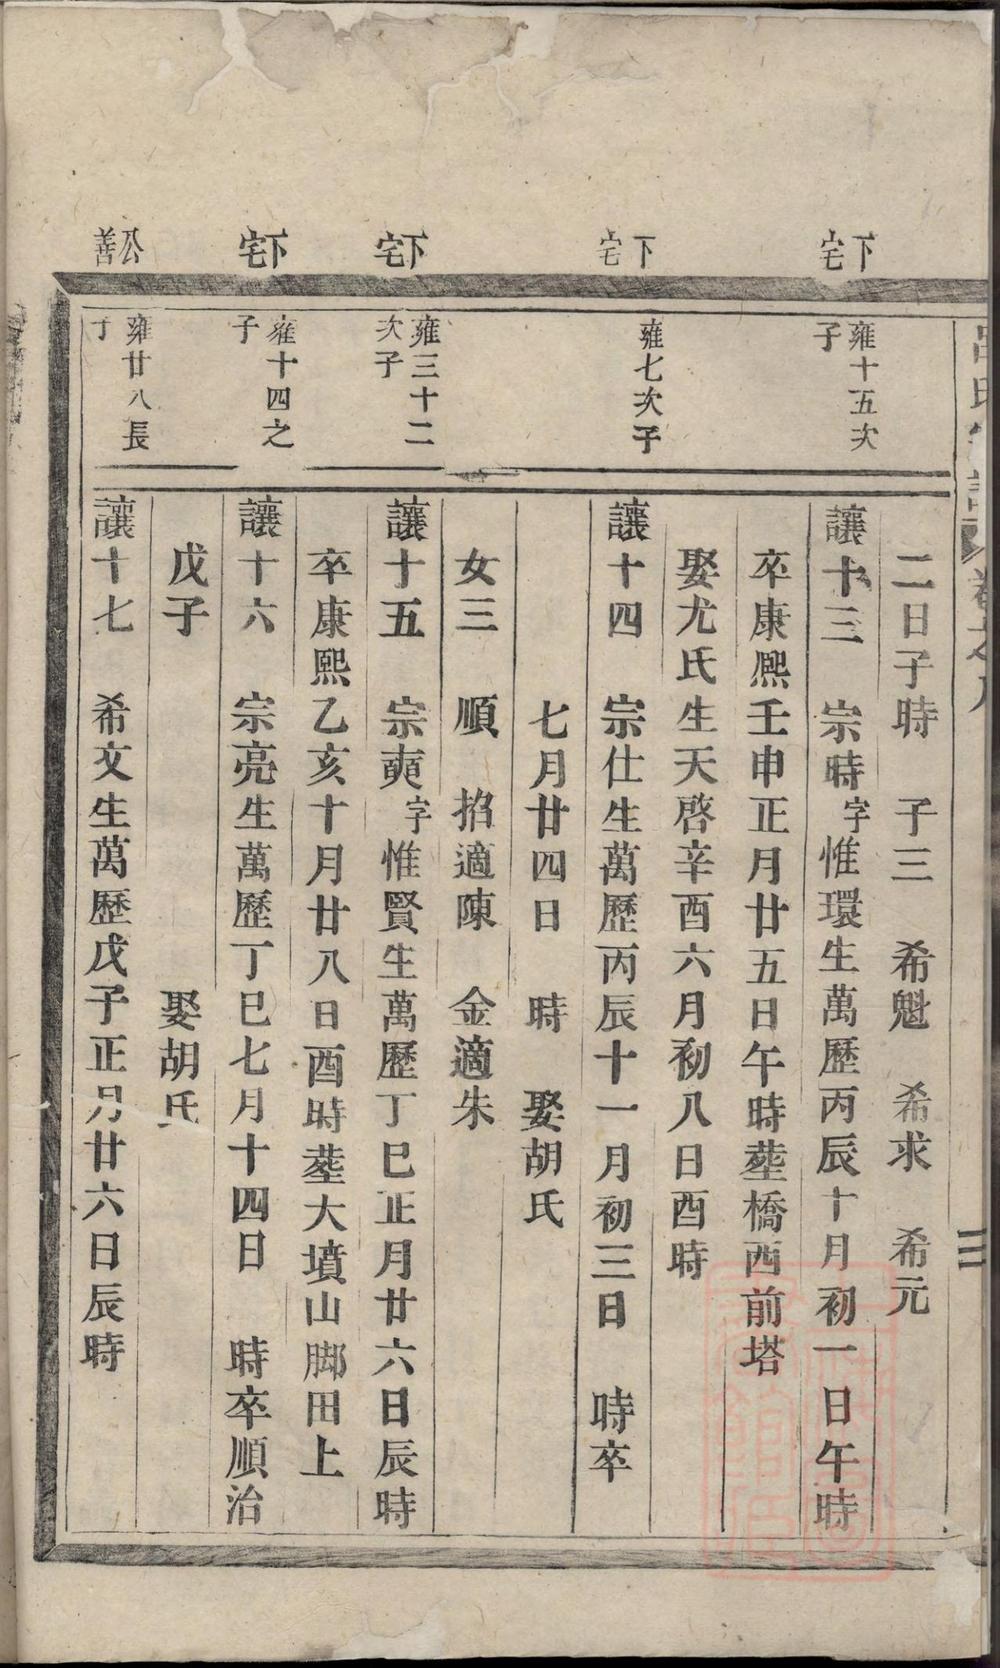 二日子時　子三　希魁　希求　希元
下宅
雍十五次子
讓十三　宗時字惟環生萬歷丙辰十月初一日午時
卒康熈壬申正月廿五日午時塟橋西前塔
娶尤氏生天啓辛酉六月初八日酉時
下宅
雍七次子
讓十四　宗仕生萬歷丙辰十一月初三日　時卒
七月廿四日　時　娶胡氏
女三　順　招適陳　金適朱
下宅
雍三十二次子
讓十五　宗奭字惟賢生萬歷丁巳正月廿六日辰時
卒康熙乙亥十月廿八日酉時塟大墳山脚田上
下宅
雍十四之子
讓十六　宗亮生萬歷丁巳七月十四日　時卒順治
戊子　娶胡氏
公善
雍廿八長
讓十七　希文生萬歷戊子正月廿六日辰時